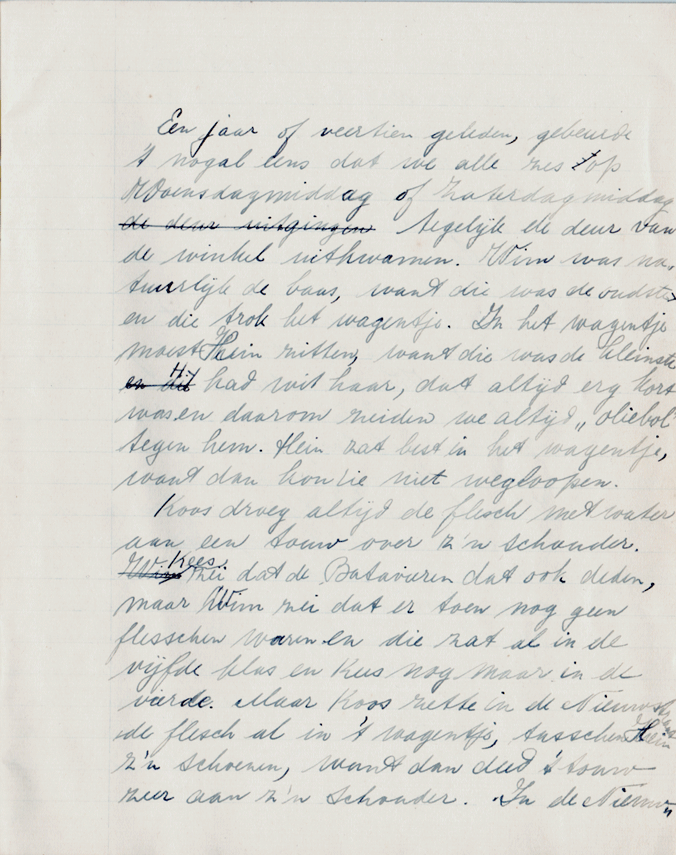 Een jaar of veertien geleden, gebeurde
't nogal eens dat we alle zes op
Woensdagmiddag of Zaterdagmiddag
de deur uitgingen tegelijk de deur van
de winkel uitkwamen. Wim was na-
tuurlijk de baas, want die was de oudste
en die trok het wagentje. In het wagentje
moest Hein zitten, want die was de kleinste
en dit Hij had wit haar, dat altijd erg kort
was en daarom zeiden we altijd „oliebol"
tegen hem. Hein zat best in het wagentje,
want dan kon ie niet wegloopen.
Koos droeg altijd de flesch met water
aan een touw over z'n schouder.
Wim Kees zei dat de Batavieren dat ook deden,
maar Wim zei dat er toen nog geen
flesschen waren en die zat al in de
vijfde klas en Kees nog maar in de
vierde. Maar Koos zette in de Nieuwstraat
de flesch al in 't wagentje, tusschen Hein
z'n schoenen, want dan deed 't touw
zeer aan z'n schouder. In de Nieuw-